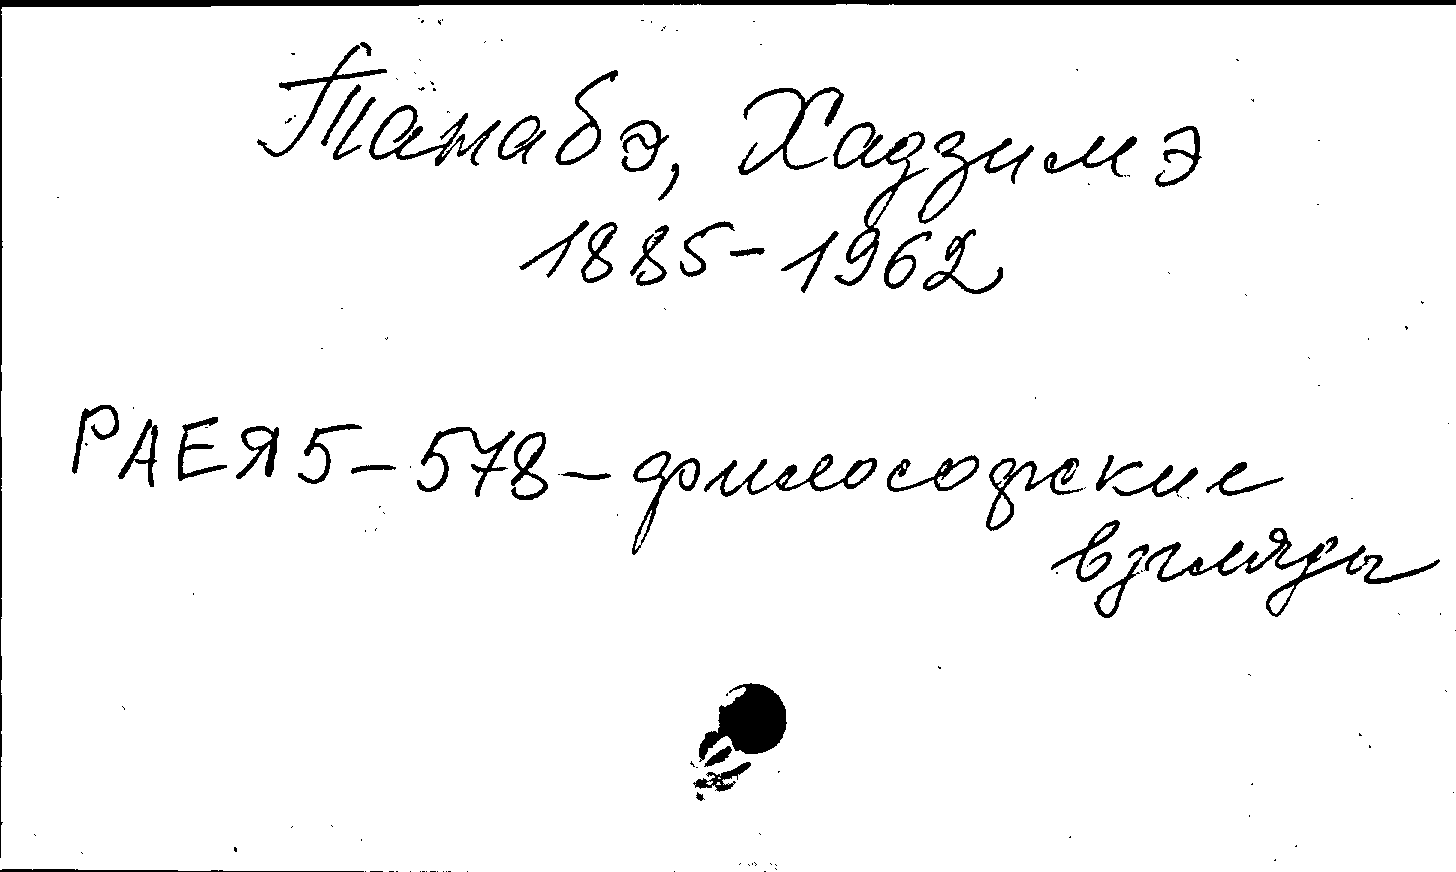 Танабэ, Хадзимэ
1885-1962
РАЕЯ5-578-философские
взгляды